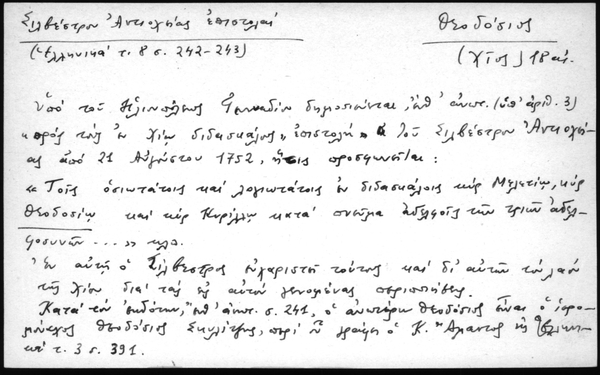 Σιλβέστρου Ἀντιοχείας ἐπιστολαί
Θεοδόσιος
(Ἑλληνικά τ. 8 σ. 242-243)
(Χῖος) 18 αἰ.
Ὑπό τοῦ Ἡλιουπόλεως Γενναδίου δημοσιεύεται, ἐνθ' ἀνωτ. (ὑπ' ἀριθ. 3)
«πρός τούς ἐν Χίῳ διδασκάλους» ἐπιστολή τοῦ Σιλβέστρου Ἀντιοχεί-
ας ἀπό 21 Αὐγούστου 1752, ἥτις προσφωνεῖται:
« Τοῖς ὁσιωτάτοις καί λογιωτάτοις ἐν διδασκάλοις κύρ Μελετίῳ, κύρ
Θεοδοσίῳ καί κύρ Κυρίλλῳ κατά πνεῦμα ἀδελφοῖς τῶν τριῶν ἀδελ-
φοσυνῶν ... » κλπ.
Ἐν αὐτῇ ὁ Σίλβεστρος εὐχαριστεῖ τούτους καί δι' αὐτῶν τόν λαόν
τῆς Χίου διά τάς εἰς αὐτόν γενομένας περιποιήσεις.
Κατά τόν ἐκδότην, ἐνθ' ἀνωτ. σ. 241, ὁ ἀνωτέρω Θεοδόσιος εἶναι ὁ ἱερο-
μόναχος Θεοδόσιος Σκυλίτζης, περί οὗ γράφει ὁ Κ. Ἄμαντος ἐν Ἑλληνι-
κά τ. 3 σ. 391.